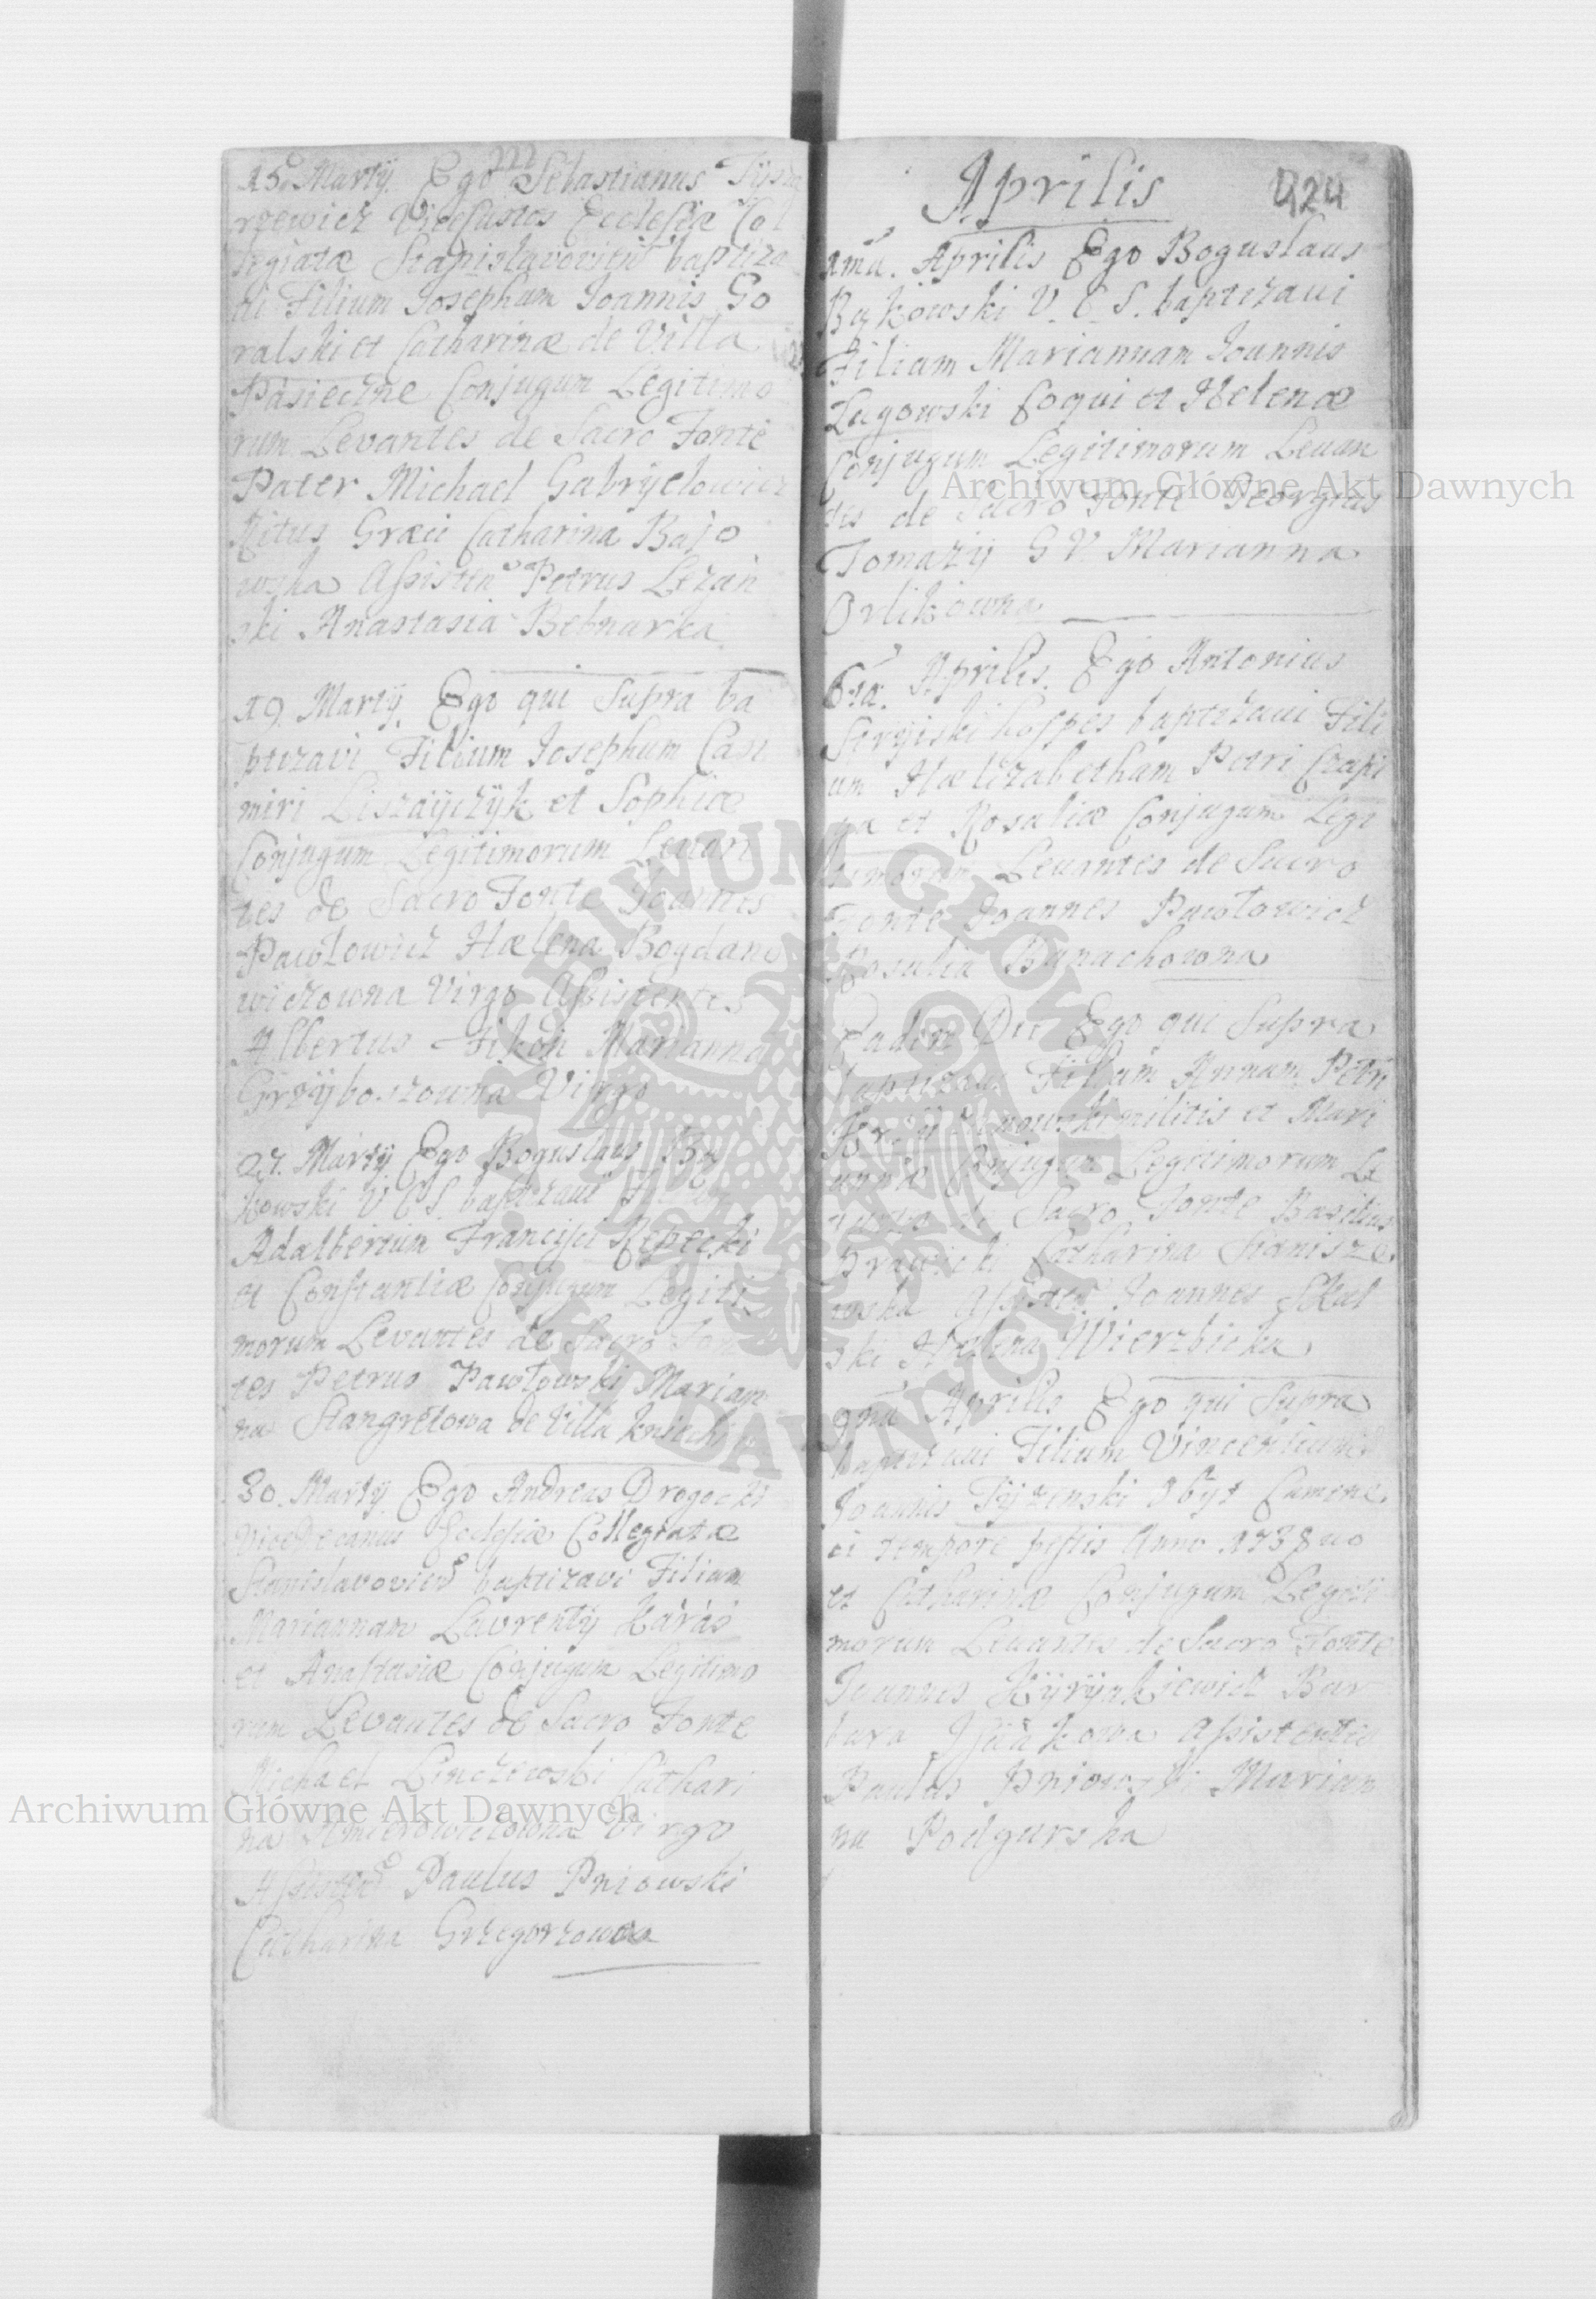 15. Martÿ. Ego Sebastianus Tÿsza
rzewicz ViceCustos Ecclesiæ Col
legiatæ Stanislavovien baptiza
vi Filium Josephum Joannis Go
ralski et Catharinæ de Villa
Pasieczne Conjugum Legitimo
rum Levantes de Sacro Fonte
Pater Michael Gabryelowicz
Ritus Græci Catharina Bajo
wska Assisten Petrus Lezan
ski Anastasia Bednarka
19. Martÿ. Ego qui Supra ba
ptizavi Filium Josephum Casi
miri Liszaÿczÿk et Sophiæ
Conjugum Legitimorum Levan
tes de Sacro Fonte Joannes
Pawłowicz Hælena Bogdano
wiczowna Virgo Assistentes
Albertus Marianna
Virgo
27. Martÿ Ego Boguslaus Bą
kowski V C S baptizaui
Adalbertum Francisci Repecki
et Constantiæ Conjugum Legiti
morum Levantes de Sacro Fon
tes Petrus Pawłowski Marian
na Stangretowa de Villa
30. Martÿ Ego Andreas Drogocki
ViceDecanus Eclesiæ Collegiatæ
Stanislavovien baptizavi Filiam
Mariannam Laurentÿ Karaś
et Anastasiæ Conjugum Legitimo
rum Levantes de Sacro Fonte
Michael Cathari
na Virgo
Assisten Paulus Pniowski
Catharina Grzegorzowa
Aprilis 424
1ma. Aprilis Ego Boguslaus
Bąkowski V. C. S. baptizaui
Filiam Mariannam Joannis
Lugowski Coqui et Helenæ
Conjugum Legitimorum Leuan
tes de Sacro Fonte Georgius
Tomazÿ G V Marianna
Orlikowna
6ta. Aprilis. Ego Antonius
Strÿiski hospes baptizaui Fili
am Hælizabetham Petri Czapi
ga et Rosaliæ Conjugum Legi
timorum Leuantes de Sacro
Fonte Joannes Pawłowicz
Rosalia Banachowna
Eadem Die Ego qui Supra
baptizaui Filiam Annam Petri
militis et Mari
annæ Conjugum Legitimorum Le
uantes de Sacro Fonte Basilius
Catharina Stanisze
wska Assisten Joannes Skal
ski Hælena Wierzbicka
9na Aprilis Ego qui Supra
baptizaui Filium Vincentium
Joannis Tÿzenski
ei tempore pestis Anno 1738uo
et Catharinæ Conjugum Legiti
morum Leuantes de Sacro Fonte
Joannes Kÿrÿakiewicz Bar
bara Assistentes
Paulus Pniowski Marian
na Podgurska
Archiwum Główne Akt Dawnych
Archiwum Główne Akt Dawnych
ARCHIWUM GŁÓWNE
AKT DAWNYCH